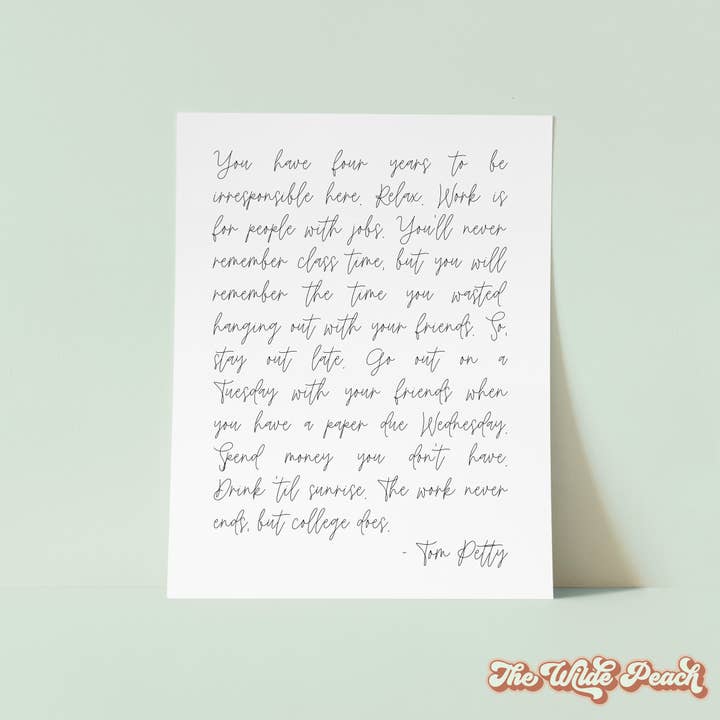 You have four years to be
irresponsible here. Relax. Work is
for people with jobs. You'll never
remember class time, but you will
remember the time you wasted
hanging out with your friends. So,
stay out late. Go out on a
Tuesday with your friends when
you have a paper due Wednesday.
Spend money you don't have.
Drink 'til sunrise. The work never
ends, but college does.
- Tom Petty
The Wilde Peach